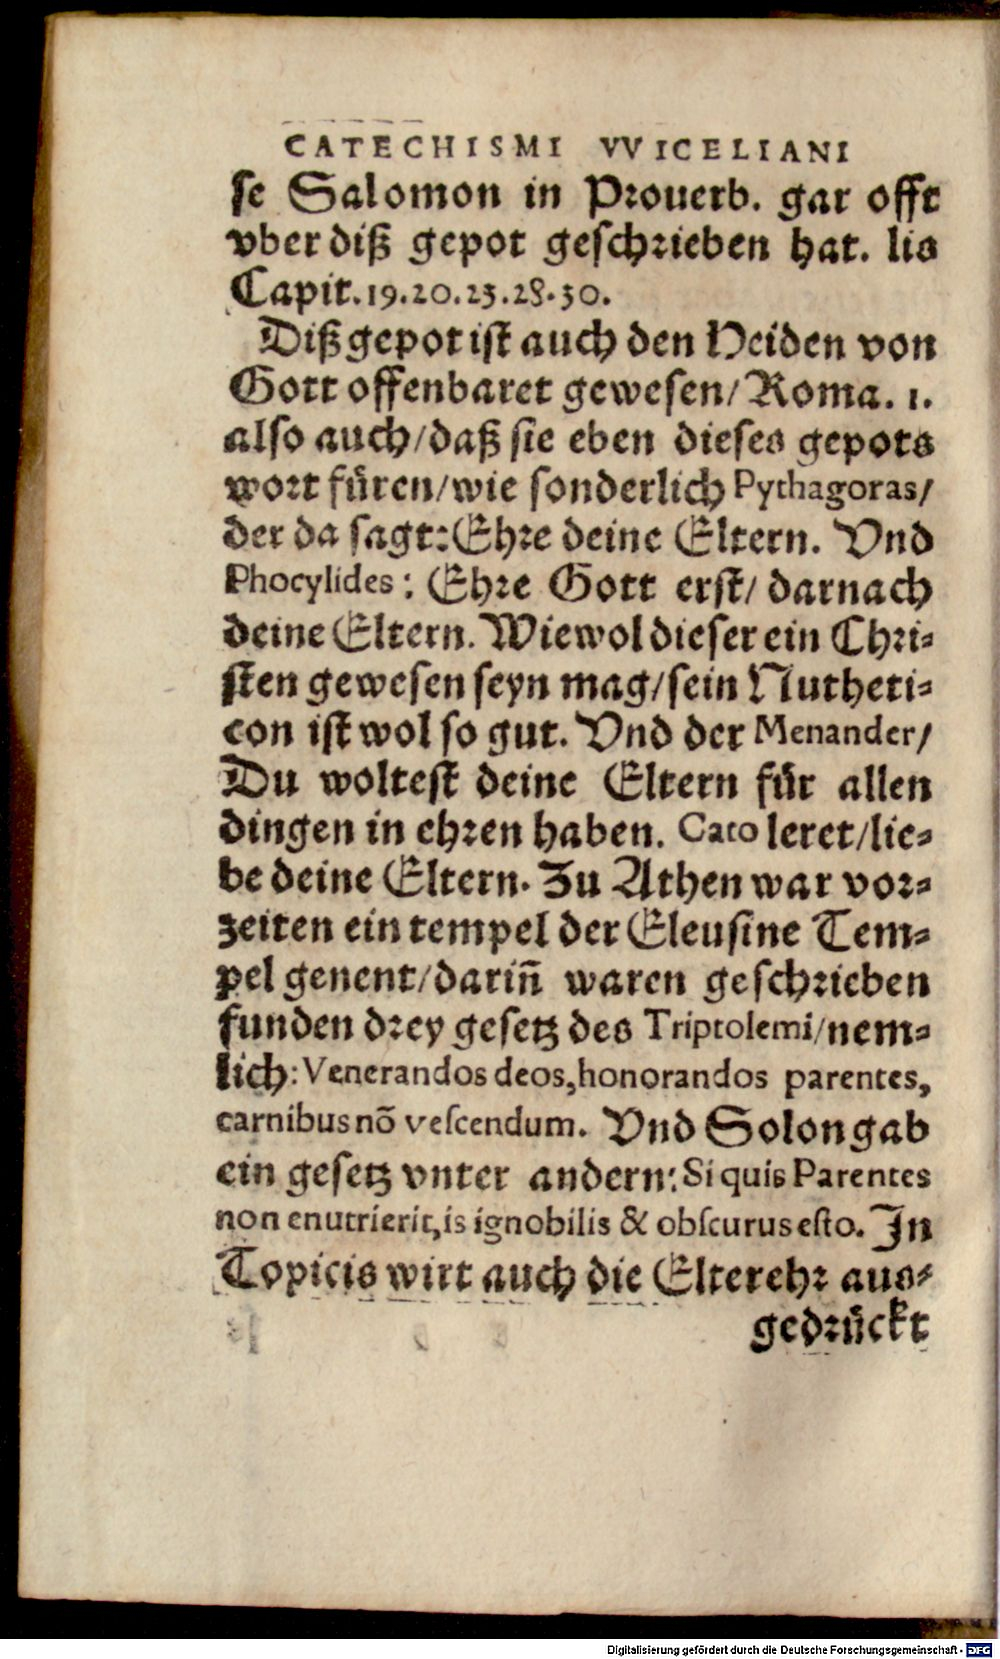 CATECHISMI VVICELIANI
se Salomon in Prouerb. gar offt
vber diß gepot geschrieben hat. lis
Capit. 19. 20. 23. 28. 30.
Diß gepot ist auch den Heiden von
Gott offenbaret gewesen/ Roma. 1.
also auch/ daß sie eben dieses gepots
wort füren/ wie sonderlich Pythagoras/
der da sagt: Ehre deine Eltern. Vnd
Phocylides: Ehre Gott erst/ darnach
deine Eltern. Wiewol dieser ein Chri=
sten gewesen seyn mag/ sein Nutheti=
con ist wol so gut. Vnd der Menander/
Du woltest deine Eltern für allen
dingen in ehren haben. Cato leret/ lie=
be deine Eltern. Zu Athen war vor=
zeiten ein tempel der Eleusine Tem=
pel genent/ dariñ waren geschrieben
funden drey gesetz des Triptolemi/ nem=
lich: Venerandos deos, honorandos parentes,
carnibus nõ vescendum. Vnd Solon gab
ein gesetz vnter andern: Si quis Parentes
non enutrierit, is ignobilis & obscurus esto. In
Topicis wirt auch die Elterehr aus=
gedrückt
Digitalisierung gefördert durch die Deutsche Forschungsgemeinschaft - DFG